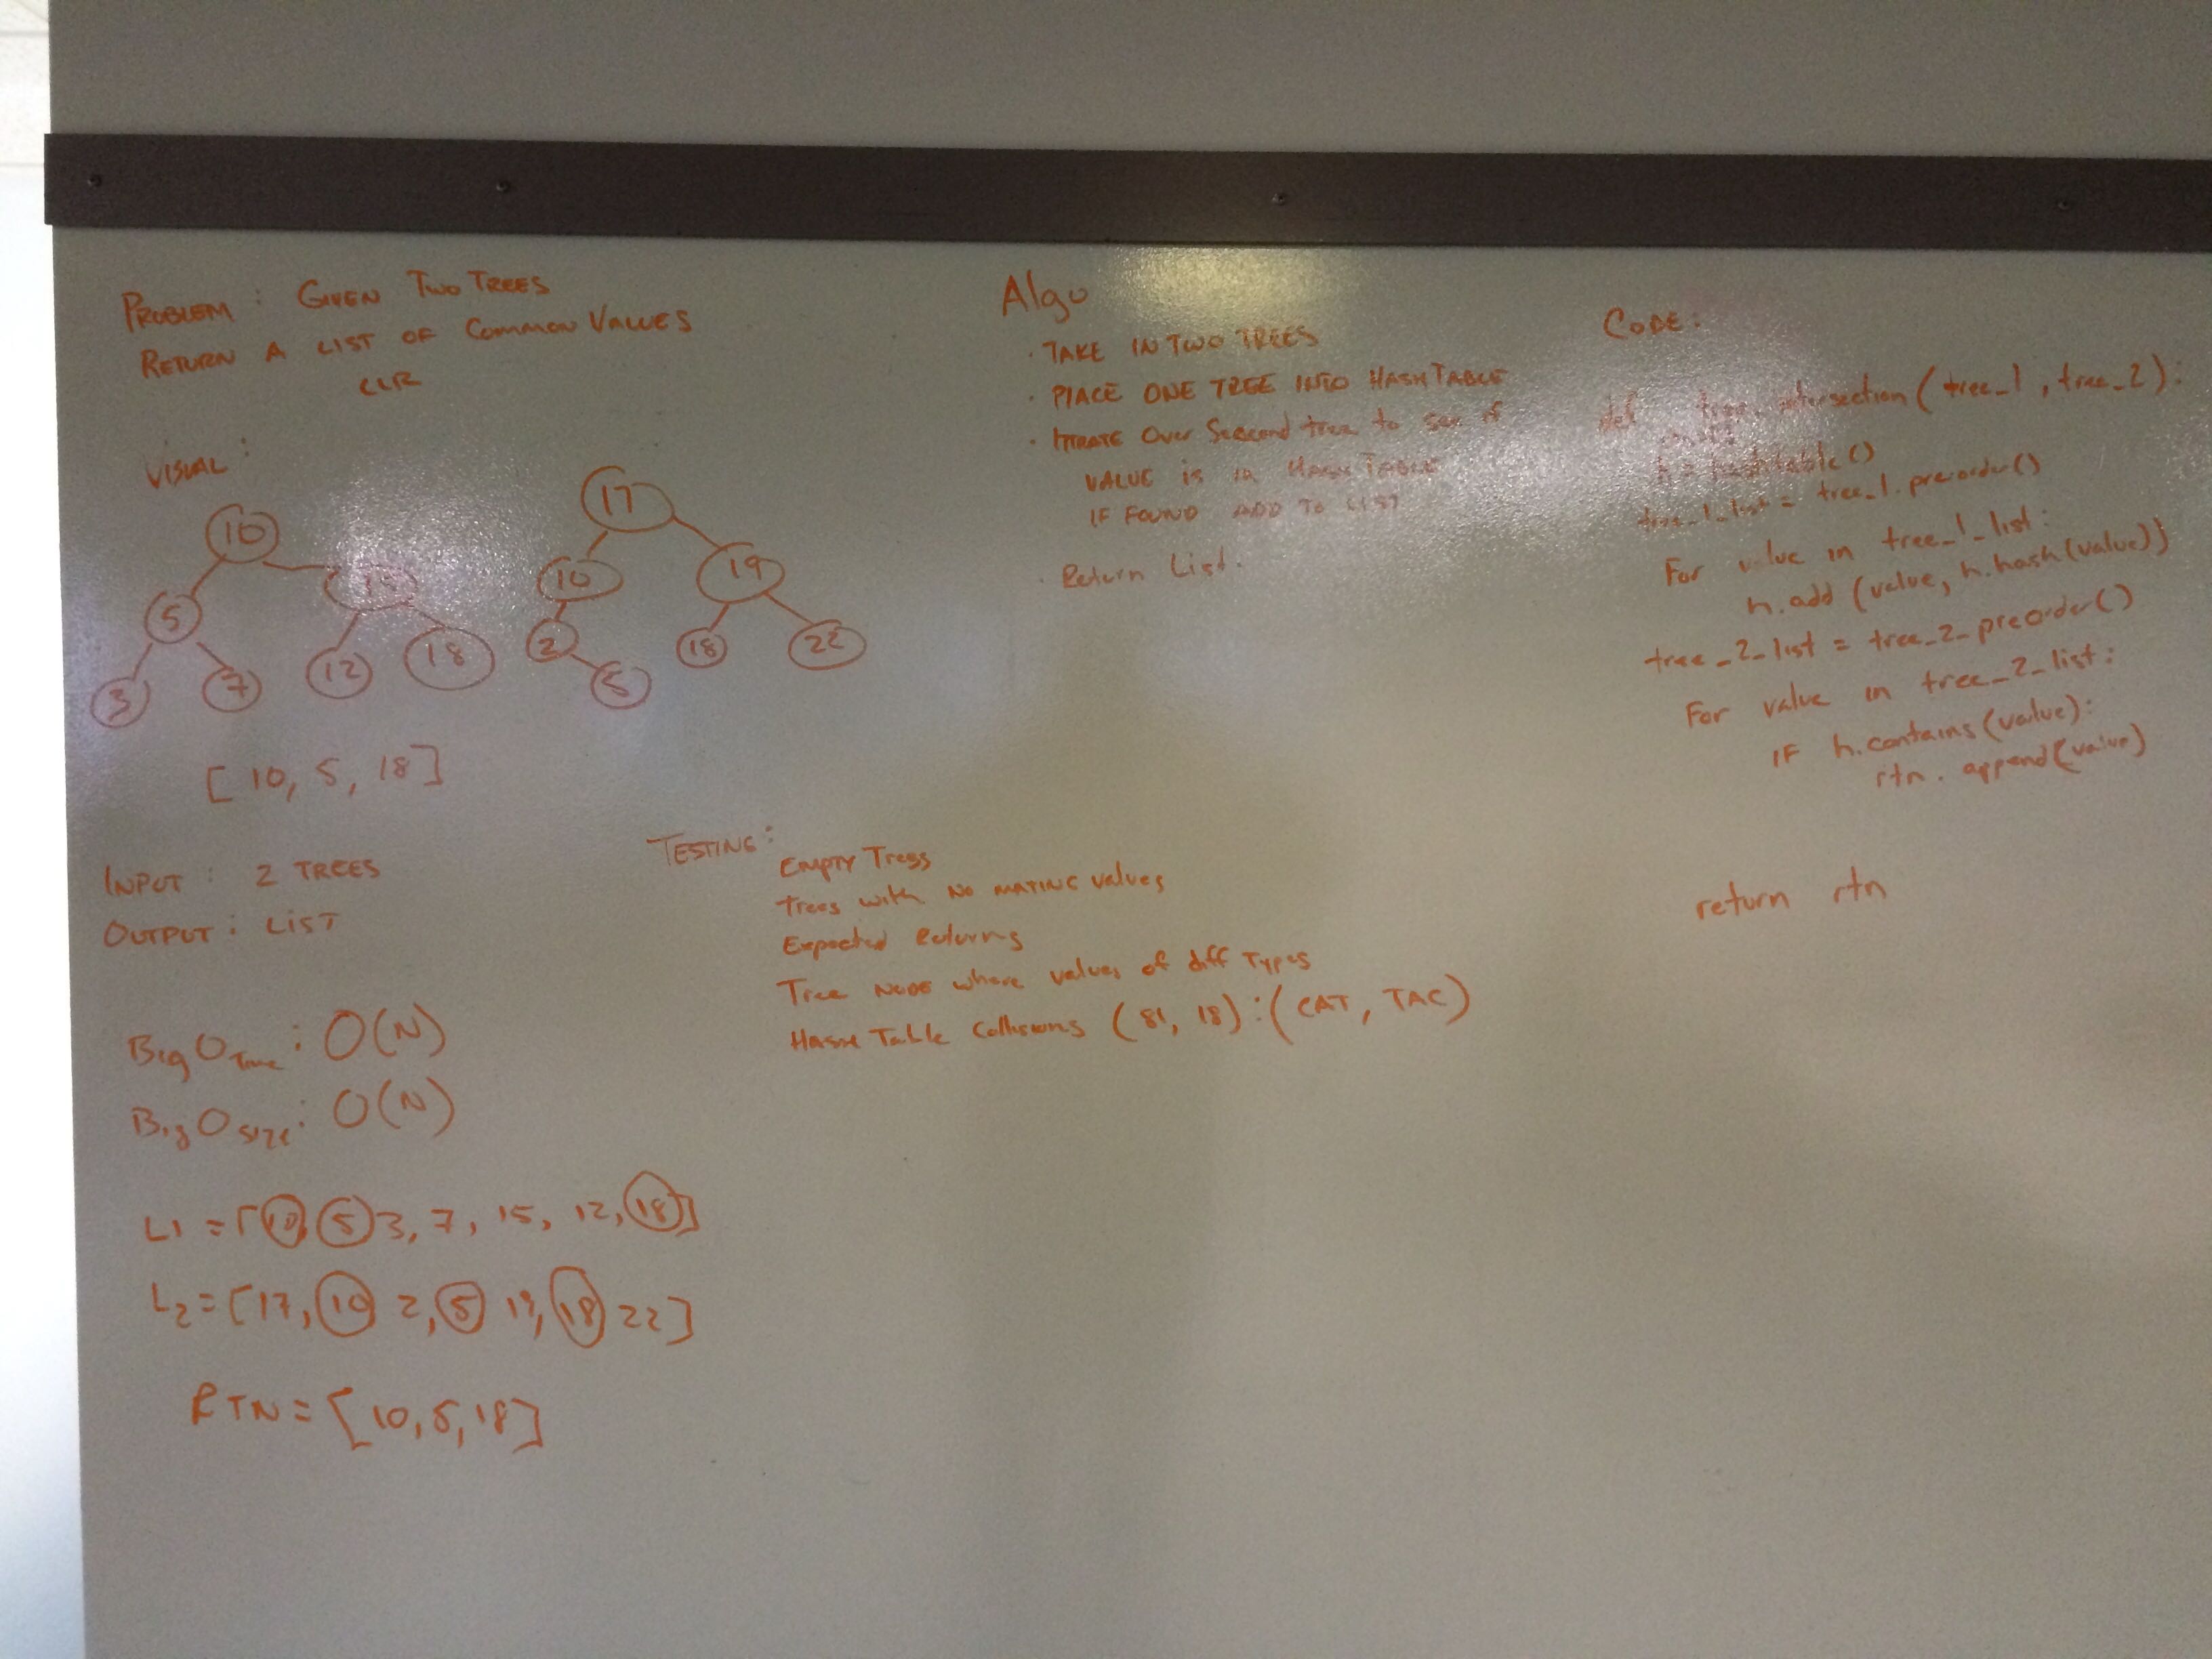 PROBLEM : GIVEN TWO TREES
RETURN A LIST OF COMMON VALUES
CLR
VISUAL:
10
5
15
3
7
12
18
17
10
19
2
18
22
5
[ 10, 5, 18 ]
INPUT : 2 TREES
OUTPUT : LIST
Big O Time : O(N)
Big O size : O(N)
L1 = [10, 5 3, 7, 15, 12, 18]
L2 = [17, 10 2, 5 19, 18 22]
RTN = [10, 5, 18]
Algo
· TAKE IN TWO TREES
· PLACE ONE TREE INTO HASHTABLE
· ITRATE Over Seacond tree to see if
VALUE is in HASH TABLE
IF FOUND ADD TO LIST
· Return List.
TESTING:
EMPTY Tress
trees with NO MATING values
Expected Returns
Tree NODE where values of diff Types
Hash Table Collisions (81, 18) : (CAT, TAC)
CODE:
def tree intersection (tree_1, tree_2):
h = hashtable()
tree_1_list = tree_1.preorder()
For value in tree_1_list:
h.add (value, h.hash(value))
tree_2_list = tree_2_preorder()
For value in tree_2_list:
IF h.contains(value):
rtn. append(value)
return rtn